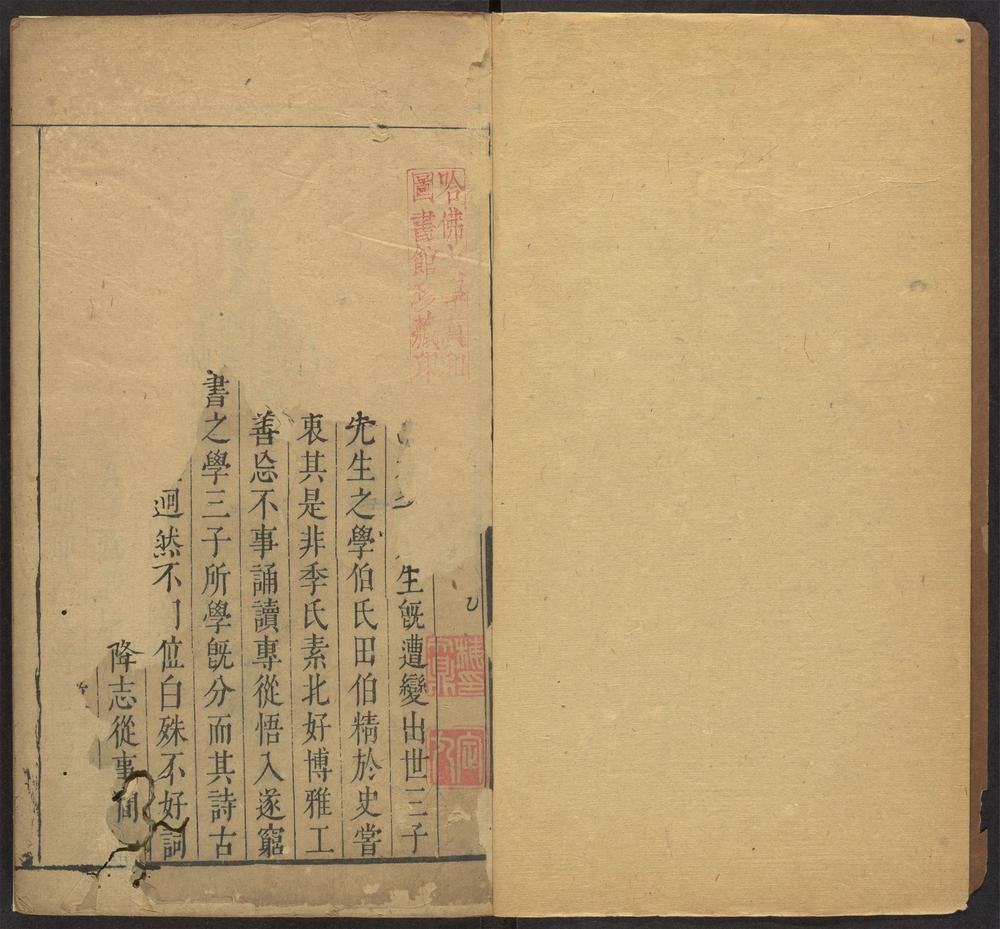 哈佛 真
圖書館 藏印
生旣遭變出世三子
先生之學伯氏田伯精於史嘗
衷其是非季氏素北好博雅工
善忩不事誦讀專從悟入遂窮
書之學三子所學旣分而其詩古
迥然不 位白殊不好詞
降志從事